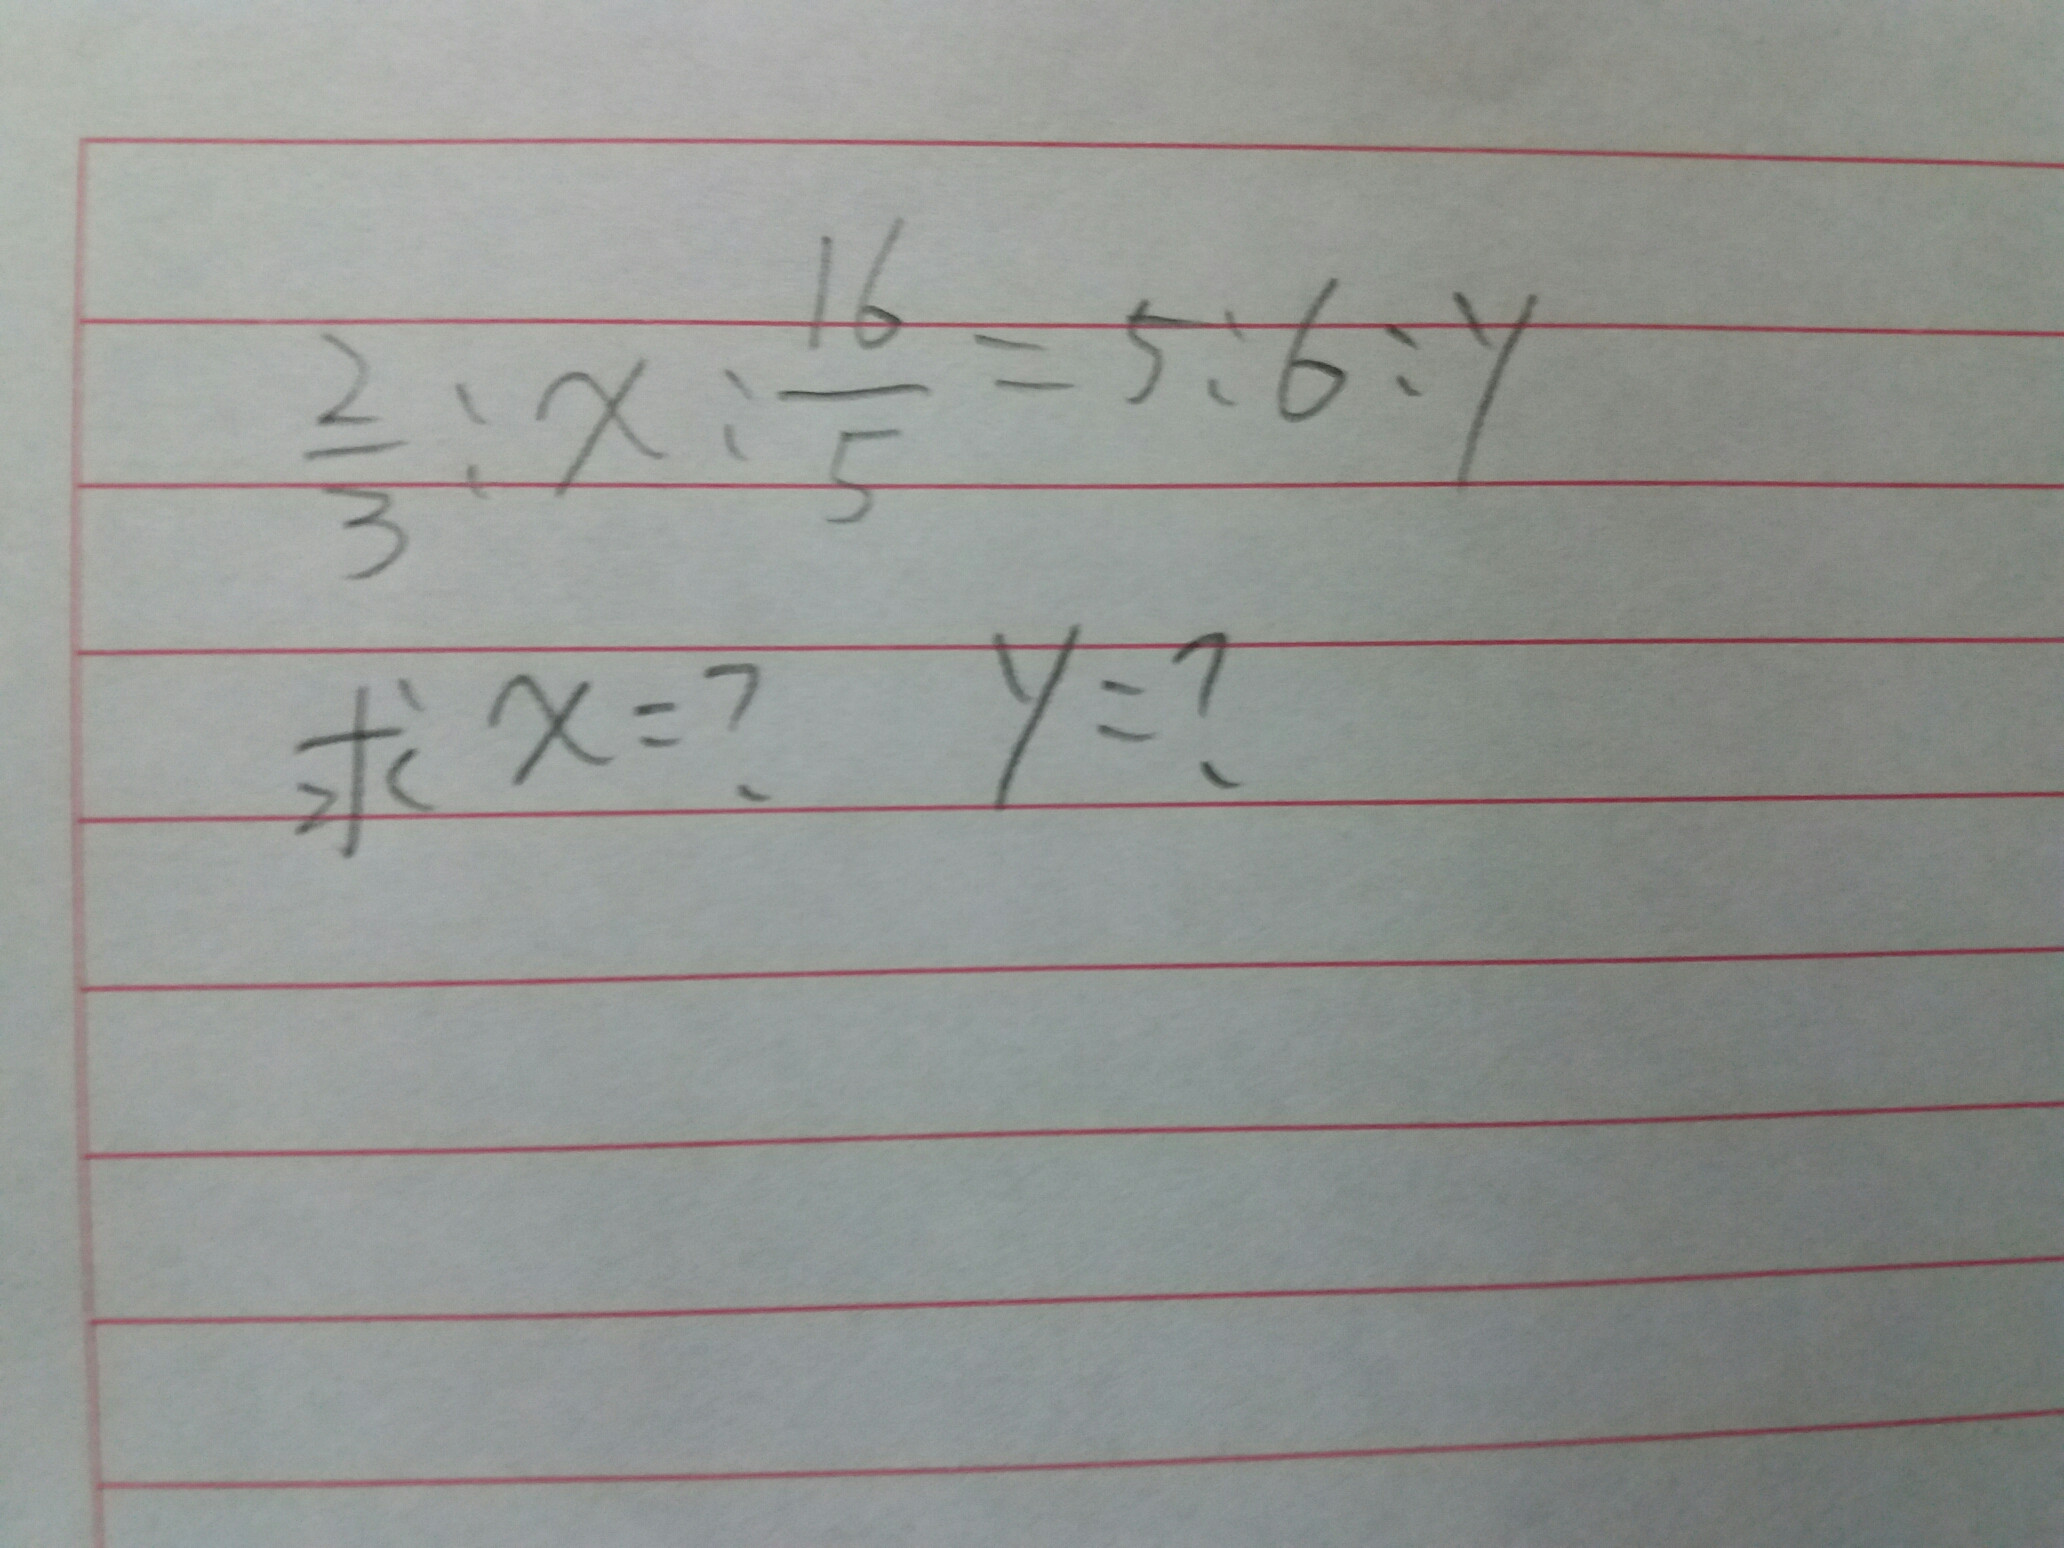 2/3 : x : 16/5 = 5 : 6 : y
求 x = ? y = ?